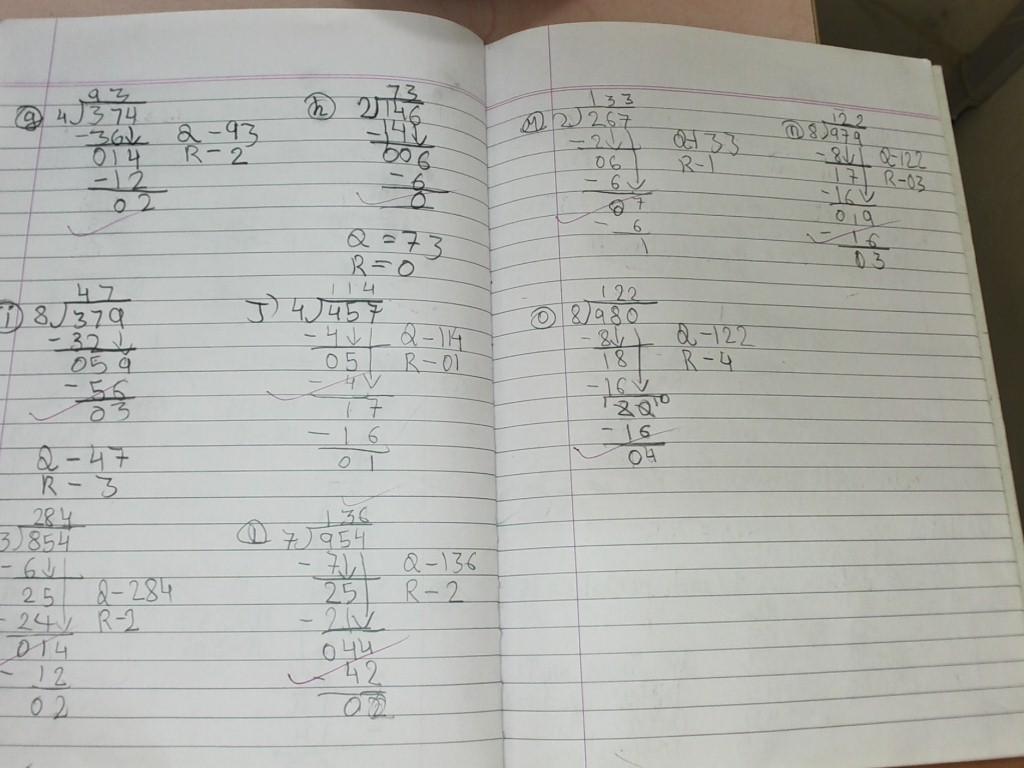 g 93
4)374
-36 Q-93
014 R-2
-12
02
h 73
2)146
-14
006
-6
0
Q=73
R=0
i 47
8)379
-32
059
-56
03
Q-47
R-3
J) 114
4)457
-4 Q-114
05 R-01
-4
17
-16
01
284
3)854
-6
25 Q-284
-24 R-2
014
-12
02
l 136
7)954
-7 Q-136
25 R-2
-21
044
-42
02
m 133
2)267
-2 Q-133
06 R-1
-6
07
-6
1
n 122
8)979
-8 Q-122
17 R-03
-16
019
-16
03
o 122
8)980
-8 Q-122
18 R-4
-16
1 20 10
-16
04